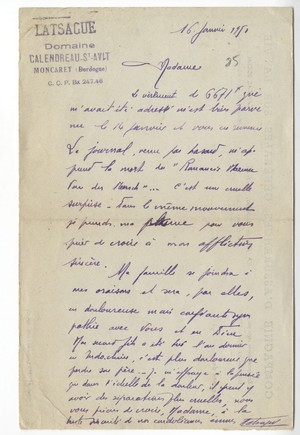 LATSAGUE
Domaine
CALENDREAU-St-AVIT
MONCARET (Dordogne)
C. C. P. Bx 247.46
16 Janvier
25
Madame,
Le virement de 6671 que
m'avait été adressé m'est bien parve
nu le 14 janvier et vous en remercie
Le journal, venu par hasard, m'ap
prend la mort du "Romancier Maxence
Van der Meersch"... C'est une cruelle
surprise. Dans le même mouvement
je prends ma plume pour vous
prier de croire à mon affliction
sincère.
Ma famille se joindra à
mes oraisons et sera, par elles,
en douloureuse mais confiante sym
pathie avec Vous et un Dieu.
Mon second fils a été tué l'an dernier
en Indochine, c'est plus douloureux que
perdre son père... je m'efforçe à la pensée
que dans l'échelle de la douleur, il peut y
avoir des séparations plus cruelles, nous
vous prions de croire, Madame, à la
de nos condoléances